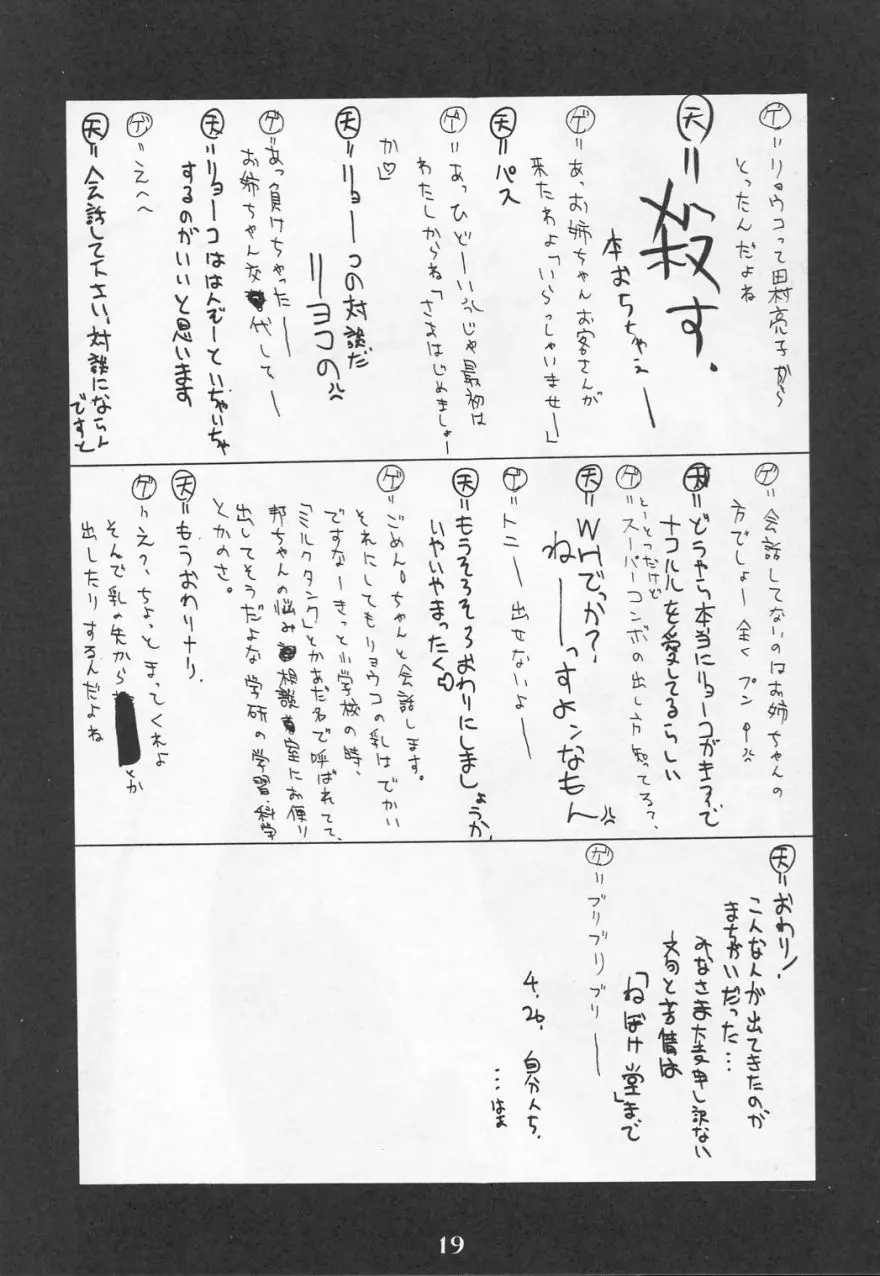 ゲ=リョウコって田村亮子から
とったんだよね
天=殺す.
本おちちゃぇー
ゲ=あっお姉ちゃんお客さんが
来たわよ「いらっしゃいませー」
天=パス
ゲ=あっひどーいうじゃ最初は
わたしからね「さぁはじめましょー
か♡」
天=リョーコの対談だ
リヨコの
ゲ=あっ負けちゃったー
お姉ちゃん交代してー
天=リョーコははんぞーといちゃいちゃ
するのがいいと思います
ゲ=えへへ
天=会話して下さい、対談にならょ
ですと
ゲ=会話してないのはお姉ちゃんの
方でしょー全くプンプ
天=どうやら本当にリョーコがキライで
ナコルルを愛してるらしい
ゲ=とーとつだけど
スーパーコンボの出し方知ってろ?、
天=WHでっか?、
ねーーっすよンなもん
ゲ=トニー出せないよー
天=もうそろそろおわりにしましょうか、
いやいやまったく♡
ゲ=ごめん。ちゃんと会話します。
それにしてもリョウコの乳はでかい
ですなーきっと小学校の時、
「ミルクタンク」とかあだ名で呼ばれてて、
邦ちゃんの悩み相談室にお便り
出してそうだよな学研の学習・科学
とかのさ。
天=もうおわりナリ.
ゲ=え?、ちょっとまってくれよ
そんで乳の先から
とか
出したりするんだよね
天=おわりノ.
こんな人が出てきたのが
まちがいだった…
みなさま大変申し訳ない
文句と苦情は
「ねぼけ堂」まで
ゲ=ブリブリブリー
4.26. 自分んち.
…はぁ
19